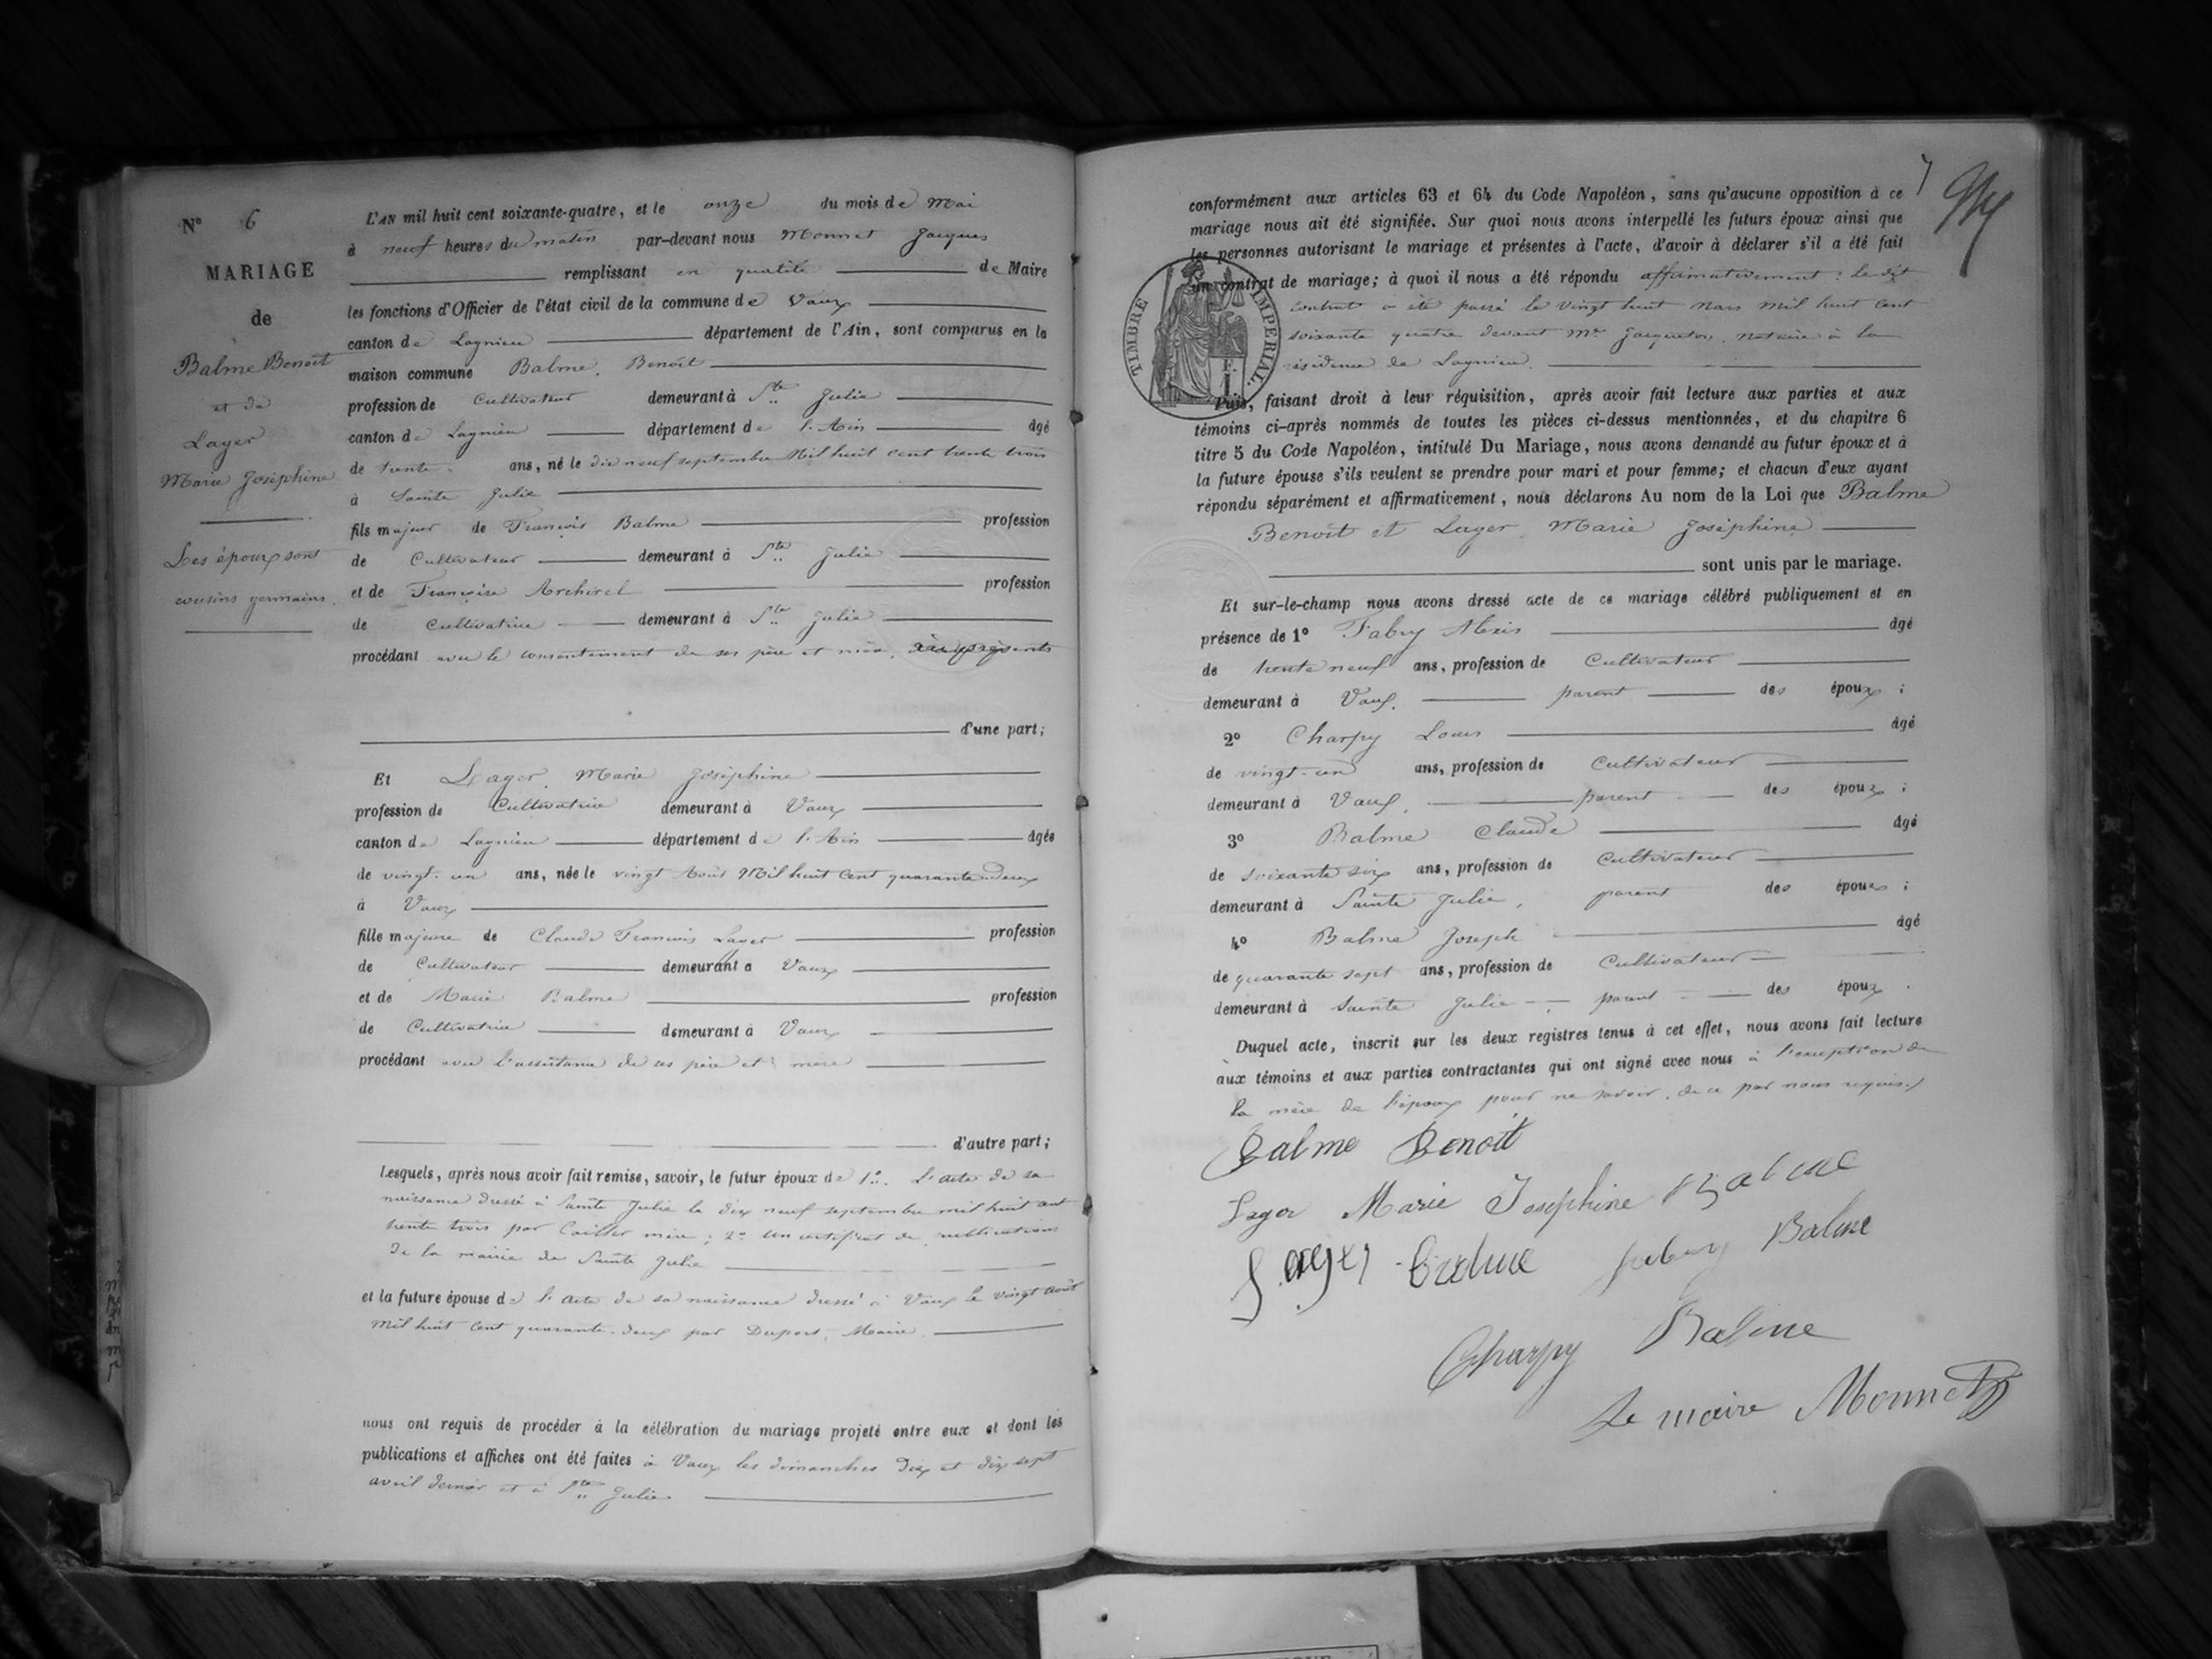 N° 6
MARIAGE
de
Balme Benoit
et de
Lager
Marie Joséphine
Les époux sont
cousins germains.
L'AN mil huit cent soixante-quatre, et le onze du mois de Mai
à neuf heures du matin par-devant nous Monnet Jacques
remplissant en qualité de Maire
les fonctions d'Officier de l'état civil de la commune de Vaux
canton de Lagnieu département de l'Ain, sont comparus en la
maison commune Balme, Benoit
profession de Cultivateur demeurant à Ste Julie
canton de Lagnieu département de l'Ain âgé
de trente ans, né le dix neuf septembre Mil huit cent trente trois
à Sainte Julie
fils majeur de François Balme profession
de Cultivateur demeurant à Ste Julie
et de Françoise profession
de Cultivatrice demeurant à Ste Julie
procédant avec le consentement de ses père et mère, présents
d'une part;
Et Lager, Marie Joséphine
profession de Cultivatrice demeurant à Vaux
canton de Lagnieu département de l'Ain âgée
de vingt-un ans, née le vingt Aout Mil huit cent quarante deux
à Vaux
fille majeure de Claude François Lager profession
de Cultivateur demeurant à Vaux
et de Marie Balme profession
de Cultivatrice demeurant à Vaux
procédant avec l'assistance de ses père et mère
d'autre part;
Lesquels, après nous avoir fait remise, savoir, le futur époux de 1°. L'acte de sa
naissance dressé à Sainte Julie le dix neuf septembre mil huit cent
trente trois par ; 2° Un certificat de publications
de la mairie de Sainte Julie
et la future épouse de l'acte de sa naissance dressé à Vaux le vingt août
Mil huit cent quarante-deux par Dupont, Maire.
nous ont requis de procéder à la célébration du mariage projeté entre eux et dont les
publications et affiches ont été faites à Vaux les dimanches dix et dix sept
avril dernier et à Ste Julie
conformément aux articles 63 et 64 du Code Napoléon, sans qu'aucune opposition à ce
mariage nous ait été signifiée. Sur quoi nous avons interpellé les futurs époux ainsi que
les personnes autorisant le mariage et présentes à l'acte, d'avoir à déclarer s'il a été fait
un contrat de mariage; à quoi il nous a été répondu affirmativement: le dit
contrat a été passé le vingt huit Mars mil huit cent
soixante quatre devant Me notaire à la
résidence de Lagnieu.
TIMBRE IMPERIAL.
Puis, faisant droit à leur réquisition, après avoir fait lecture aux parties et aux
témoins ci-après nommés de toutes les pièces ci-dessus mentionnées, et du chapitre 6
titre 5 du Code Napoléon, intitulé Du Mariage, nous avons demandé au futur époux et à
la future épouse s'ils veulent se prendre pour mari et pour femme; et chacun d'eux ayant
répondu séparément et affirmativement, nous déclarons Au nom de la Loi que Balme
Benoit et Lager, Marie Joséphine
sont unis par le mariage.
Et sur-le-champ nous avons dressé acte de ce mariage célébré publiquement et en
présence de 1° Fabry Alexis âgé
de trente neuf ans, profession de Cultivateur
demeurant à Vaux. parent des époux;
2° Charpy Louis âgé
de vingt-un ans, profession de Cultivateur
demeurant à Vaux. parent des époux;
3° Balme Claude âgé
de soixante six ans, profession de Cultivateur
demeurant à Sainte Julie, parent des époux;
4° Balme Joseph âgé
de quarante sept ans, profession de Cultivateur
demeurant à Sainte Julie parent des époux.
Duquel acte, inscrit sur les deux registres tenus à cet effet, nous avons fait lecture
aux témoins et aux parties contractantes qui ont signé avec nous à l'exception de
la mère de l'époux pour ne savoir, de ce par nous requis.
Balme Benoit
Lager Marie Josephine Balme
Lager Balme fabry Balme
Charpy Balme
Le maire Monnet